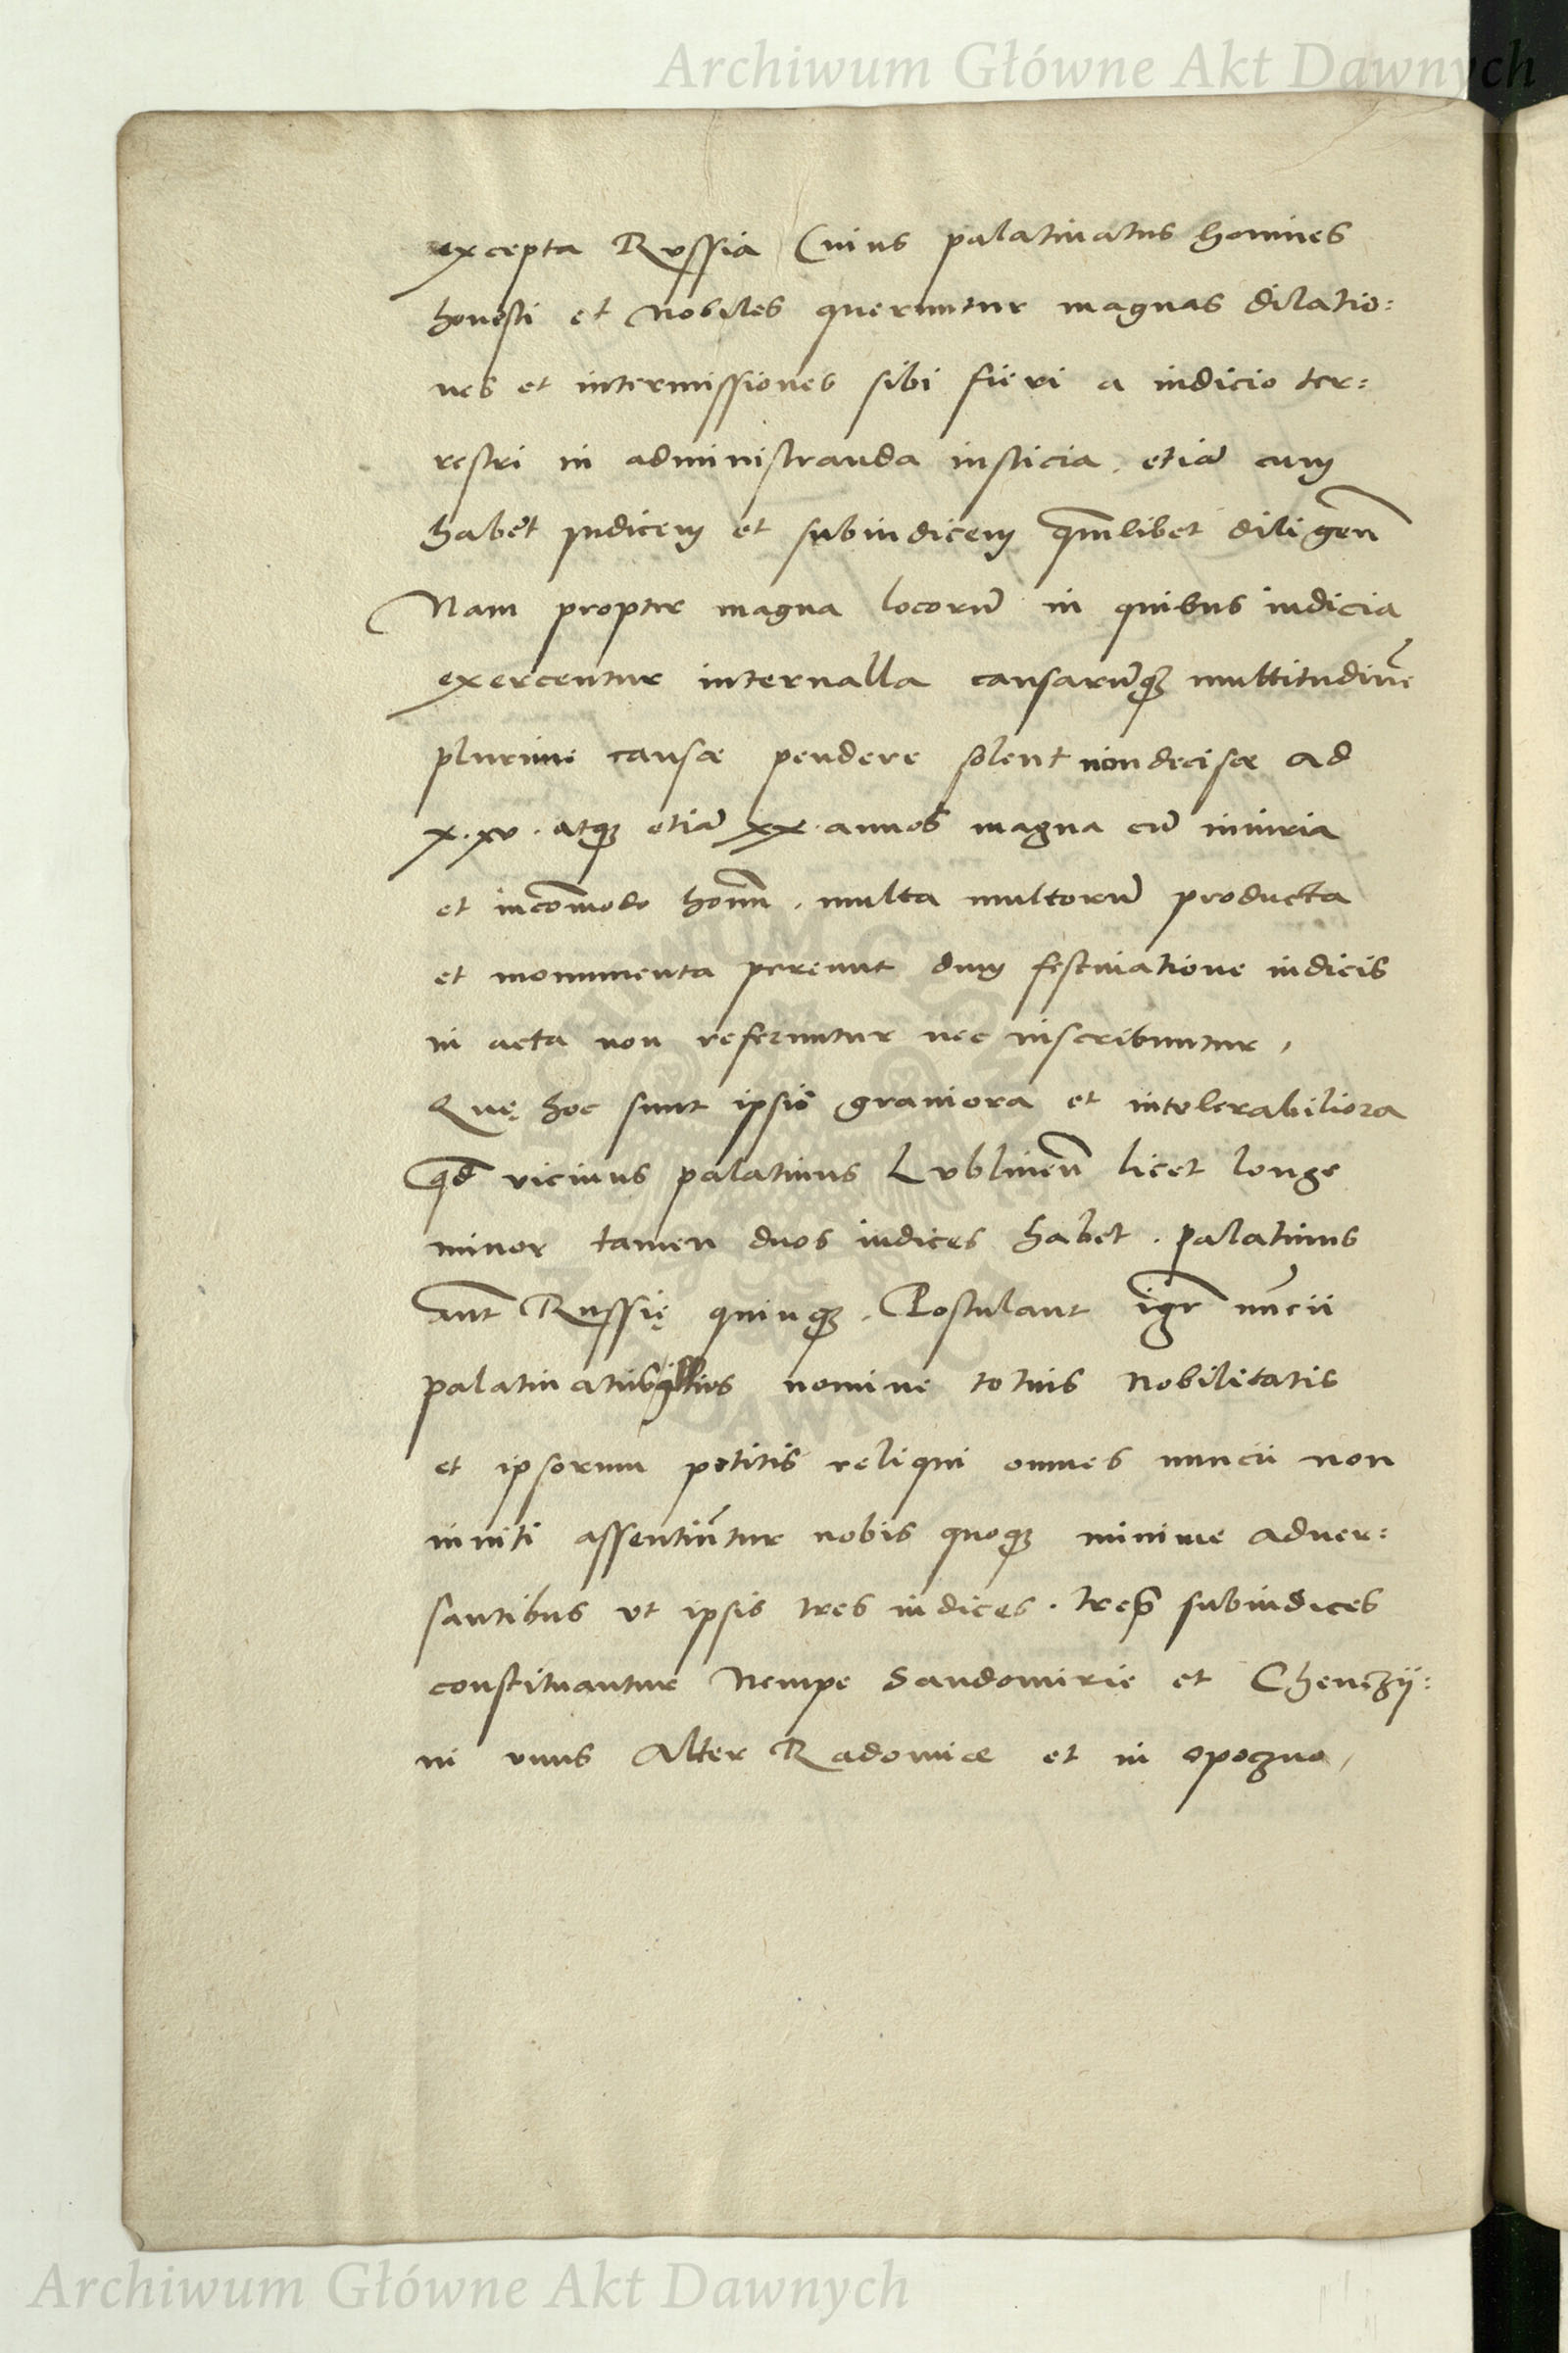 Archiwum Główne Akt Dawnych
excepta Russia Cuius palatinatus homines
honesti et nobiles queruntur magnas dilatio:
nes et intermissiones sibi fieri a iudicio ter:
restri in administranda iusticia, etiã cum
habẽt Judicem et subiudicem quãlibet diligen̄
Nam propter magna locorũ in quibus iudicia
exercentur interualla causarũq3 multitudinẽ
plurime causæ pendere solent non decisæ ad
x. xv. atq3 etiã xx. annos magna cũ iniuria
et incõmodo hom̄, multa multorũ producta
et monumenta pereunt dum festinatione iudicis
in acta non referuntur nec inscribuntur,
Quę hoc sunt ipsis grauiora et intolerabiliora
qd̃ vicinus palatinus Lublinen̄ licet longe
minor tamen duos iudices habet. palatinus
aut̃ Russię quinq3. Postulant igr̃ nũcii
palatinatus illius nomine totius Nobilitatis
et ipsorum petitis reliqui omnes nuncii non
inuiti assentiũtur nobis quoq3 minime aduer:
santibus vt ipsis tres iudices. tresq3 subiudices
constituantur Nempe Sandomirie et Chenczÿ:
ni vnus Alter Radomiæ et in opoczno,
ARCHIWUM GŁÓWNE AKT DAWNYCH
Archiwum Główne Akt Dawnych